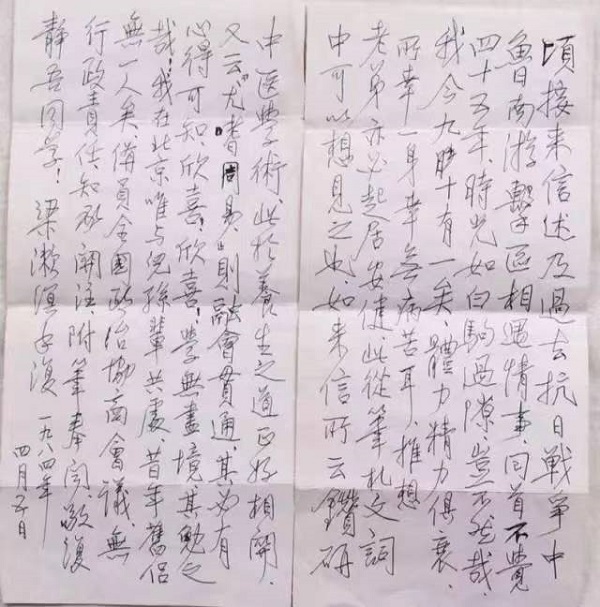 頃接来信述及過去抗日戰爭中
魯南游擊區相遇情事、回首不覺
四十五年、時光如白駒過隙、豈不然哉、
我今九時十有一矣、體力精力俱衰、
所幸一身幸無病苦耳、推想
老弟亦必起居安健、此從筆札文詞
中可以想見之也、如来信所云鑽研
中医學術、此於養生之道正好相關、
又云"尤耆周易"則融會貫通、其必有
心得可知、欣喜!欣喜!學無盡境其勉之
哉!我在北京唯与兒孫輩共處、昔年舊侣
無一人矣備員全國政治協商會議、無
行政責任、知承関注、附筆奉聞、敬復
靜吾同学!梁漱溟手復 一九八四年
四月五日